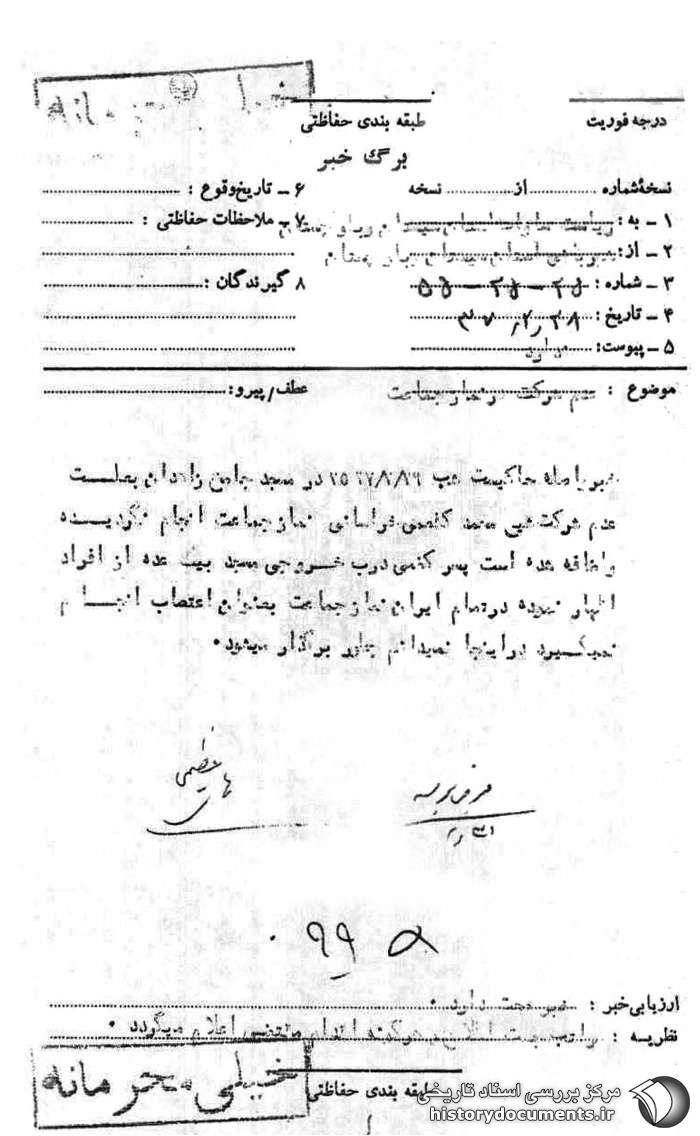 درجه فوریت
طبقه بندی حفاظتی
برگ خبر
نسخهٔ شماره ............ از ............ نسخه
۶ ـ تاریخ وقوع :
۱ ـ به : ریاست سازمان سیستان و بلوچستان
۷ ـ ملاحظات حفاظتی :
۲ ـ از : سیستان و بلوچستان
۳ ـ شماره : ۲۵ – ۲۵ – ۵۵
۸ گیرندگان :
۴ ـ تاریخ : ۲۸ر۲ر۳۷
۵ ـ پیوست : ندارد
موضوع : عدم شرکت در نماز جماعت
عطف/پیرو :
خبر واصله حاکیست شب در مسجد جامع زاهدان بعلت
عدم شرکت شیخ محمد کفعمی خراسانی نماز جماعت انجام نگردیده
و اضافه شده است پسر کفعمی درب خروجی مسجد به یک عده از افراد
اظهار نموده در تمام ایران نماز جماعت بعنوان اعتصاب انجام
نمیگیرد در اینجا نمیدانم چطور برگذار میشود۰
ارزیابی خبر : خبر صحت دارد ۰
نظریه : مراتب جهت اطلاع و هرگونه اقدام مقتضی اعلام میگردد ۰
خیلی محرمانه
طبقه بندی حفاظتی
مرکز بررسی اسناد تاریخی
historydocuments.ir